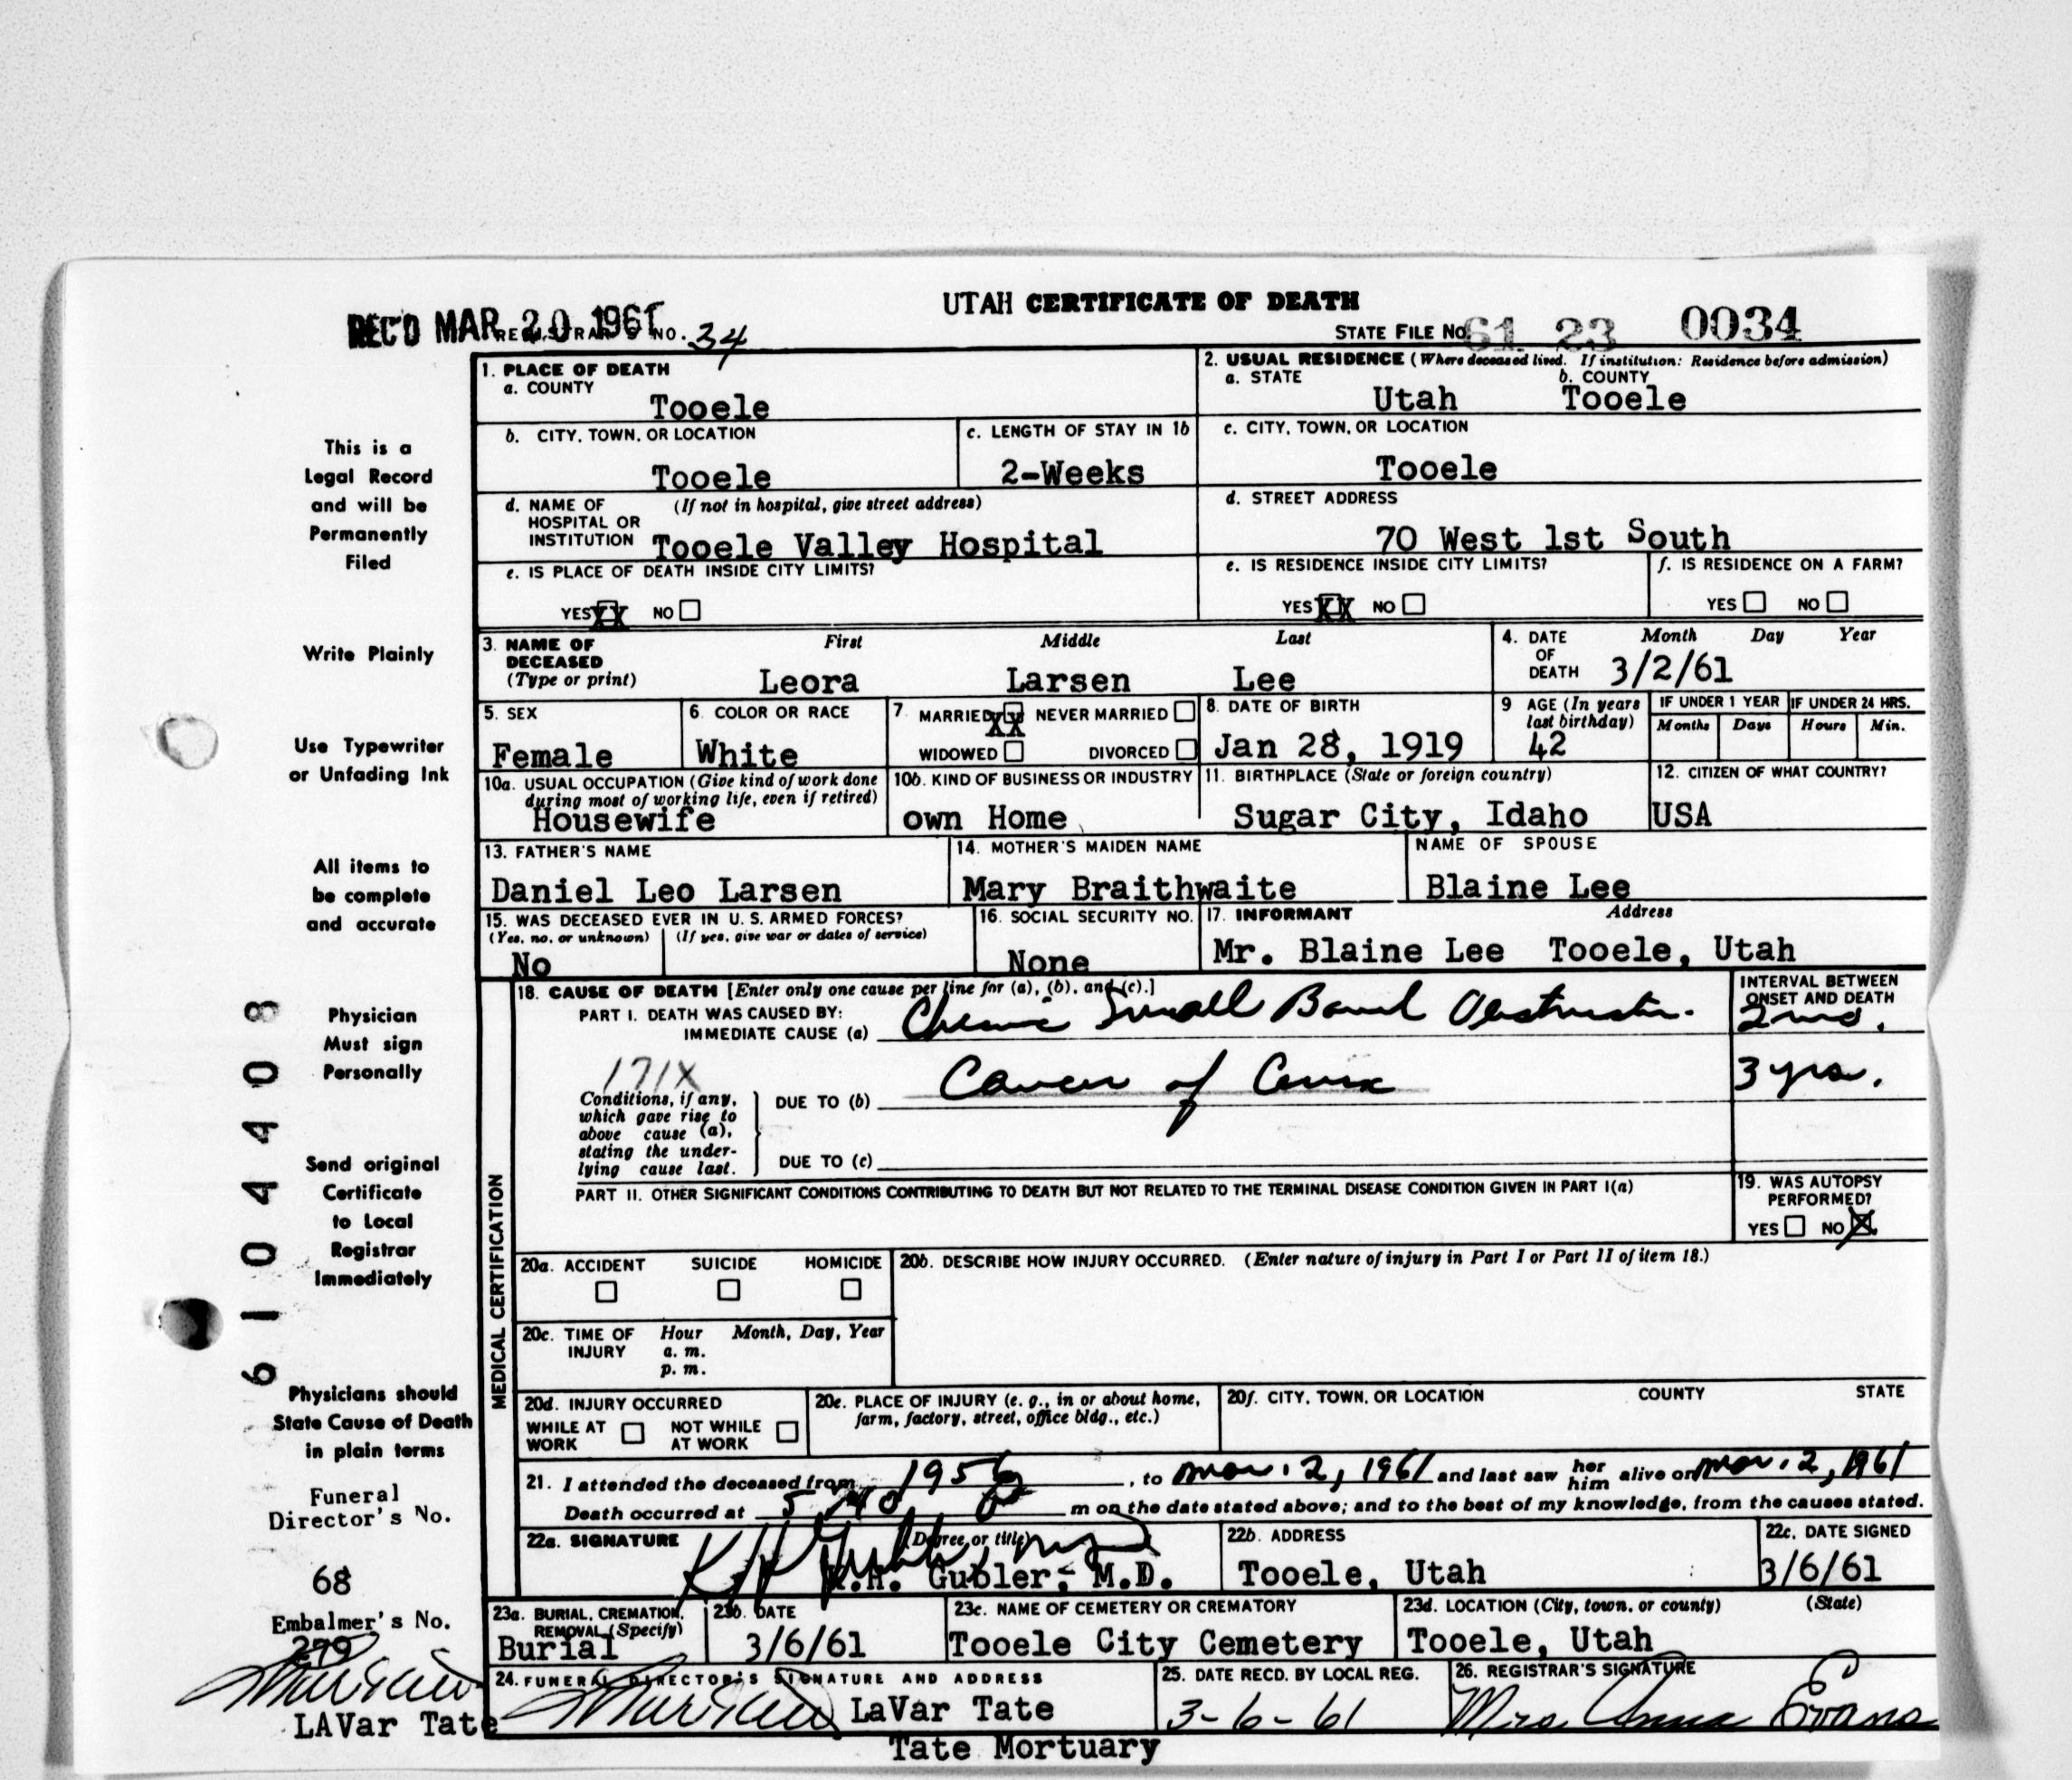 UTAH CERTIFICATE OF DEATH
REC'D MAR 20 1961 NO. 34
STATE FILE NO. 61 23 0034
1. PLACE OF DEATH
a. COUNTY
Tooele
2. USUAL RESIDENCE (Where deceased lived. If institution: Residence before admission)
a. STATE b. COUNTY
Utah Tooele
b. CITY, TOWN, OR LOCATION
Tooele
c. LENGTH OF STAY IN 1b
2-Weeks
c. CITY, TOWN, OR LOCATION
Tooele
d. NAME OF HOSPITAL OR INSTITUTION (If not in hospital, give street address)
Tooele Valley Hospital
d. STREET ADDRESS
70 West 1st South
e. IS PLACE OF DEATH INSIDE CITY LIMITS?
YES XX NO
e. IS RESIDENCE INSIDE CITY LIMITS?
YES XX NO
f. IS RESIDENCE ON A FARM?
YES NO
3. NAME OF DECEASED (Type or print)
First Middle Last
Leora Larsen Lee
4. DATE OF DEATH Month Day Year
3/2/61
5. SEX
Female
6. COLOR OR RACE
White
7. MARRIED XX NEVER MARRIED
WIDOWED DIVORCED
8. DATE OF BIRTH
Jan 28, 1919
9 AGE (In years last birthday)
42
IF UNDER 1 YEAR
Months Days
IF UNDER 24 HRS.
Hours Min.
10a. USUAL OCCUPATION (Give kind of work done during most of working life, even if retired)
Housewife
10b. KIND OF BUSINESS OR INDUSTRY
own Home
11. BIRTHPLACE (State or foreign country)
Sugar City, Idaho
12. CITIZEN OF WHAT COUNTRY?
USA
13. FATHER'S NAME
Daniel Leo Larsen
14. MOTHER'S MAIDEN NAME
Mary Braithwaite
NAME OF SPOUSE
Blaine Lee
15. WAS DECEASED EVER IN U. S. ARMED FORCES?
(Yes, no, or unknown) (If yes, give war or dates of service)
No
16. SOCIAL SECURITY NO.
None
17. INFORMANT Address
Mr. Blaine Lee Tooele, Utah
MEDICAL CERTIFICATION
18. CAUSE OF DEATH [Enter only one cause per line for (a), (b), and (c).]
PART I. DEATH WAS CAUSED BY:
IMMEDIATE CAUSE (a) Chronic Small Bowel Obstruction.
INTERVAL BETWEEN ONSET AND DEATH
2 mo.
171X
Conditions, if any, which gave rise to above cause (a), stating the underlying cause last.
DUE TO (b) Cancer of Cervix
3 yrs.
DUE TO (c)
PART II. OTHER SIGNIFICANT CONDITIONS CONTRIBUTING TO DEATH BUT NOT RELATED TO THE TERMINAL DISEASE CONDITION GIVEN IN PART I(a)
19. WAS AUTOPSY PERFORMED?
YES NO X
20a. ACCIDENT SUICIDE HOMICIDE
20b. DESCRIBE HOW INJURY OCCURRED. (Enter nature of injury in Part I or Part II of item 18.)
20c. TIME OF INJURY Hour Month, Day, Year
a. m.
p. m.
20d. INJURY OCCURRED
WHILE AT WORK NOT WHILE AT WORK
20e. PLACE OF INJURY (e. g., in or about home, farm, factory, street, office bldg., etc.)
20f. CITY, TOWN, OR LOCATION COUNTY STATE
21. I attended the deceased from 1956, to Mar. 2, 1961 and last saw her him alive on Mar. 2, 1961
Death occurred at 5 40 P m on the date stated above; and to the best of my knowledge, from the causes stated.
22a. SIGNATURE (Degree or title)
K H Gubler, MD
K.H. Gubler, M.D.
22b. ADDRESS
Tooele, Utah
22c. DATE SIGNED
3/6/61
23a. BURIAL, CREMATION, REMOVAL (Specify)
Burial
23b. DATE
3/6/61
23c. NAME OF CEMETERY OR CREMATORY
Tooele City Cemetery
23d. LOCATION (City, town, or county) (State)
Tooele, Utah
24. FUNERAL DIRECTOR'S SIGNATURE AND ADDRESS
LaVar Tate
Tate Mortuary
25. DATE RECD. BY LOCAL REG.
3-6-61
26. REGISTRAR'S SIGNATURE
Mrs. Anna Evans
This is a
Legal Record
and will be
Permanently
Filed
Write Plainly
Use Typewriter
or Unfading Ink
All items to
be complete
and accurate
Physician
Must sign
Personally
Send original
Certificate
to Local
Registrar
Immediately
Physicians should
State Cause of Death
in plain terms
Funeral
Director's No.
68
Embalmer's No.
279
LAVar Tate
61 04408